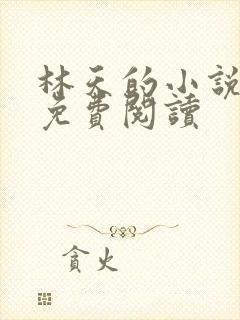 林天的小說
免費閱讀
貪火